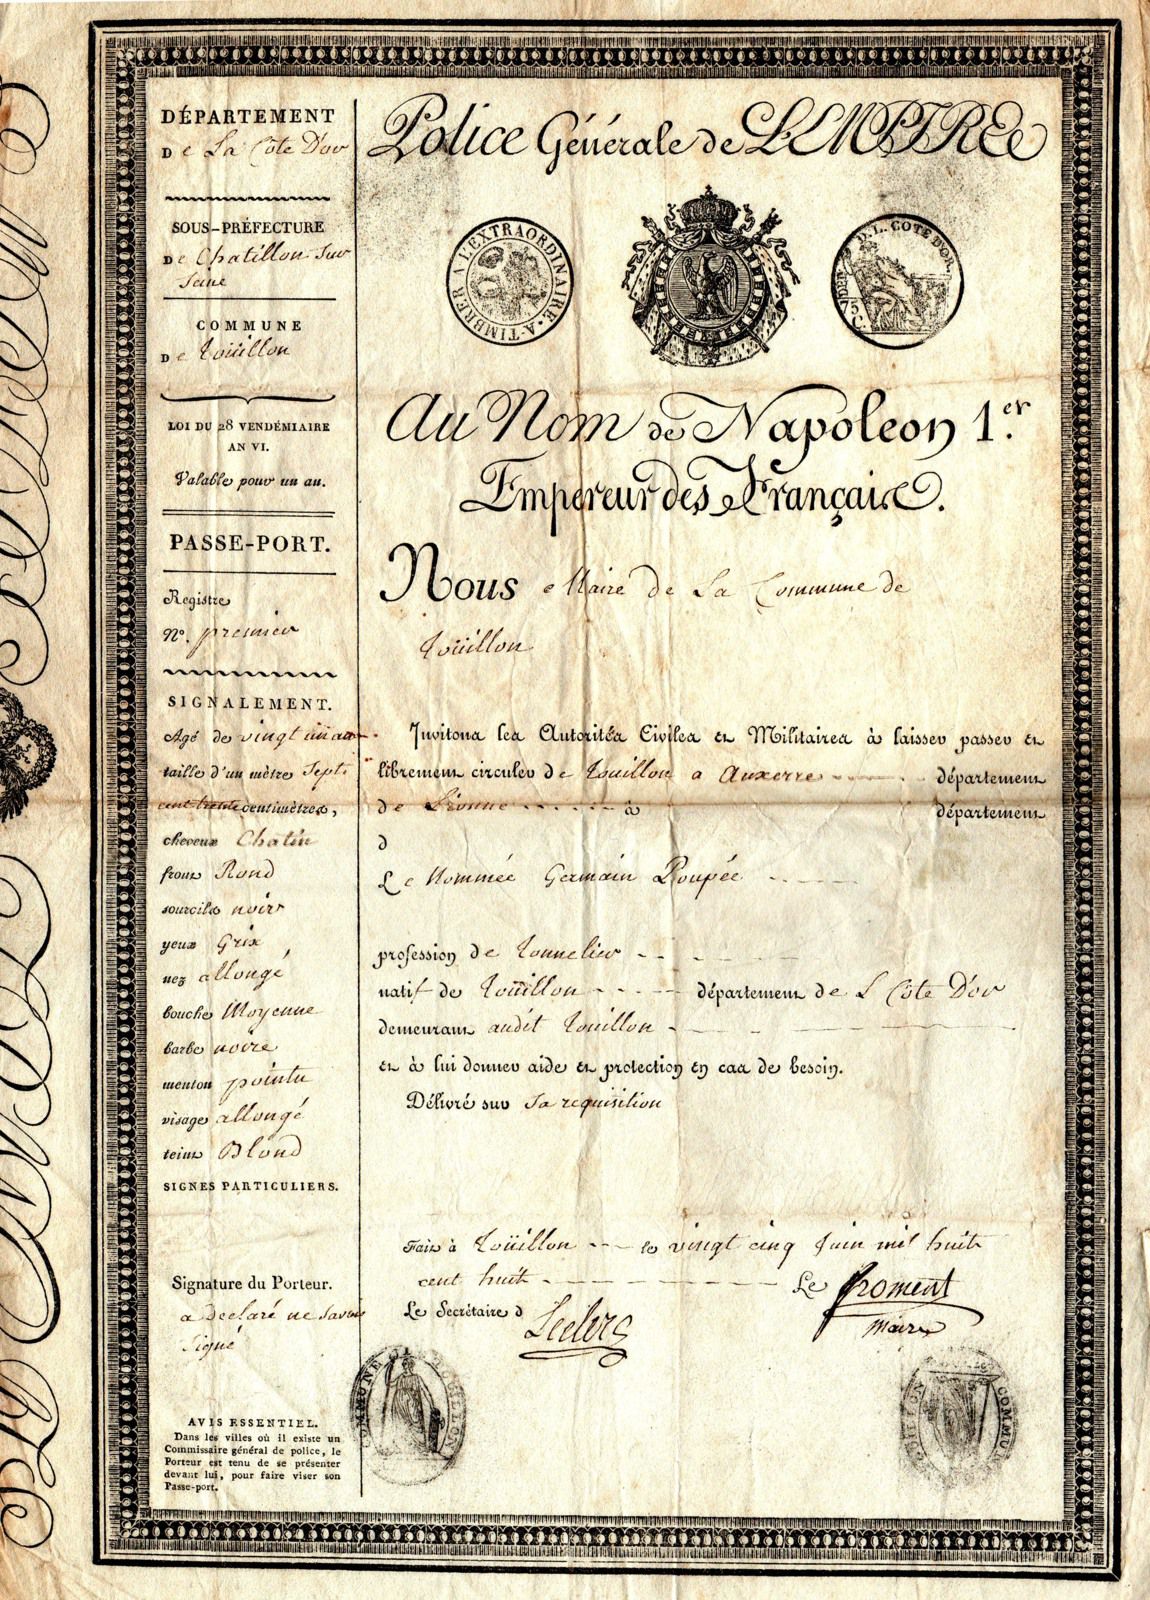 DÉPARTEMENT
De La Côte D'or
SOUS-PRÉFECTURE
De Chatillon Sur
Seine
COMMUNE
De Toüillon
LOI DU 28 VENDÉMIAIRE
AN VI.
Valable pour un an.
PASSE-PORT.
Registre
N°. premier
SIGNALEMENT.
Agé de vingt un an
taille d'un mètre Sept
cent trente centimètres,
cheveux Chatin
front Rond
sourcils noir
yeux Grix
nez allongé
bouche Moyenne
barbe noire
menton pointu
visage allongé
teint Blond
SIGNES PARTICULIERS.
Signature du Porteur.
a Declaré ne Savoir
Signé
AVIS ESSENTIEL.
Dans les villes où il existe un
Commissaire général de police, le
Porteur est tenu de se présenter
devant lui, pour faire viser son
Passe-port.
Police Générale de L'EMPIRE
A TIMBRER A L'EXTRAORDINAIRE
D.L. COTE D'OR.
Au Nom de Napoleon 1.er
Empereur des Français.
Nous Maire de La Commune de
Toüillon
Invitons les Autorités Civiles et Militaires à laisser passer et
librement circuler de Touillon a Auxerre département
de Lionne à département
d
Le Nommée Germain Poupée
profession de Tonnelier
natif de Toüillon département de L Côte D'or
demeurant audit Touillon
et à lui donner aide et protection en cas de besoin.
Délivré sur Sa requisition
Fait à Toüillon le vingt cinq Juin mil huit
cent huit Le Froment
Maire
Le Secrétaire d Leclerc
COMMUNE TOUILLON
TOUILLON COMMU